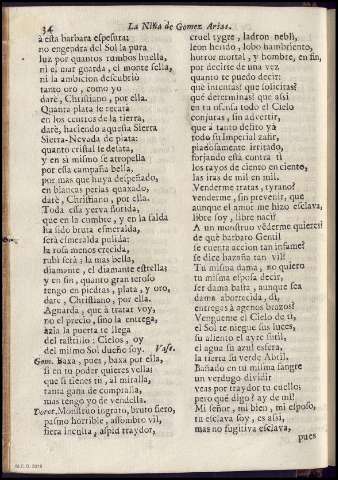 34
La Niña de Gomez Arias.
à esta barbara espesura;
no engendra del Sol la pura
luz por quantos rumbos huella,
ni el mar guarda, el monte sella,
ni la ambicion descubriò
tanto oro, como yo
darè, Christiano, por ella.
Quanta plata te retrata
en los centros de la tierra,
darè, haciendo aquesta Sierra
Sierra-Nevada de plata:
quanto cristal se delata,
y en sì mismo se atropella
por essa campaña bella,
por mas que huya despeñado,
en blancas perlas quaxado,
darè, Christiano, por ella.
Toda essa yerva florida,
que en la cumbre, y en la falda
ha sido bruta esmeralda,
serà esmeralda pulida:
la rosa menos crecida,
rubì serà; la mas bella,
diamante, el diamante estrella;
y en fin, quanto gran tesoro
tengo en piedras, plata, y oro,
dare, Christiano, por ella.
Aguarda, que à tratar voy,
no el precio, sino la entrega,
àzia la puerta te llega
del rastrillo: Cielos, oy
del mismo Sol dueño soy. Vase.
Gom. Baxa, pues, baxa por ella,
si en tu poder quieres vella;
que si tienes tu, al miralla,
tanta gana de compralla,
mas tengo yo de vendella.
Dorot. Monstruo ingrato, bruto fiero,
pasmo horrible, assombro vil,
fiera inculta, aspid traydor,
cruel tygre, ladron neblì,
leon herido, lobo hambriento,
horror mortal, y hombre, en fin,
por decirte de una vez
quanto te puedo decir:
què intentas? què solicitas?
què determinas? que assi
en tu ofensa todo el Cielo
conjuras, sin advertir,
que à tanto delito yà
todo su Imperial zafir,
piadosamente irritado,
forjando està contra ti
los rayos de ciento en ciento,
las iras de mil en mil.
Venderme tratas, tyrano?
venderme, sin prevenir, que
aunque el amor me hizo esclava,
libre soy, libre nacì?
A un monstruo vẽderme quieres?
de què barbaro Gentil
se cuenta accion tan infame?
se dice hazaña tan vil?
Tu misma dama, no quiero
tu misma esposa decir,
ser dama basta, aunque sea
dama aborrecida, dì,
entregas à agenos brazos?
Venguenme el Cielo de ti,
el Sol te niegue sus luces,
su aliento el ayre sutil,
el agua su azul esfera,
la tierra su verde Abril.
Bañado en tu misma sangre
un verdugo dividir
veas por traydor tu cuello;
pero què digo? ay de mi!
Mi señor, mi bien, mi esposo,
tu esclava soy, es assi,
mas no fugitiva esclava,
pues